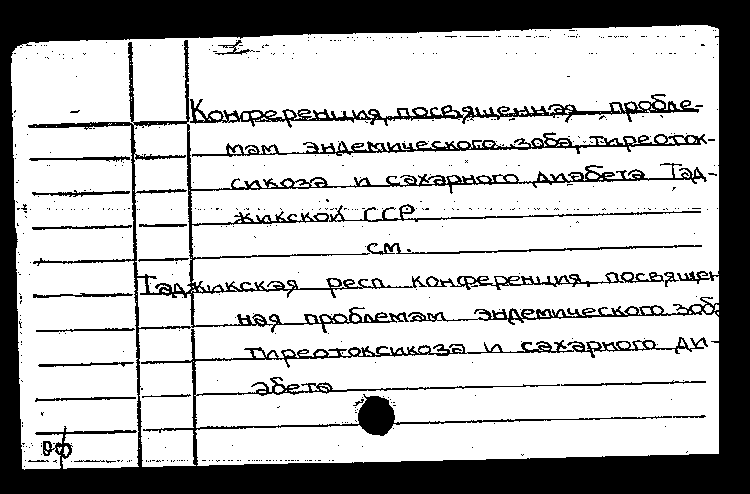 Конференция, посвященная пробле-
мам эндемического зоба, тиреоток-
сикоза и сахарного диабета Тад-
жикской ССР.
см.
Таджикская респ. конференция, посвящен
ная проблемам эндемического зоба
тиреотоксикоза и сахарного ди-
абета